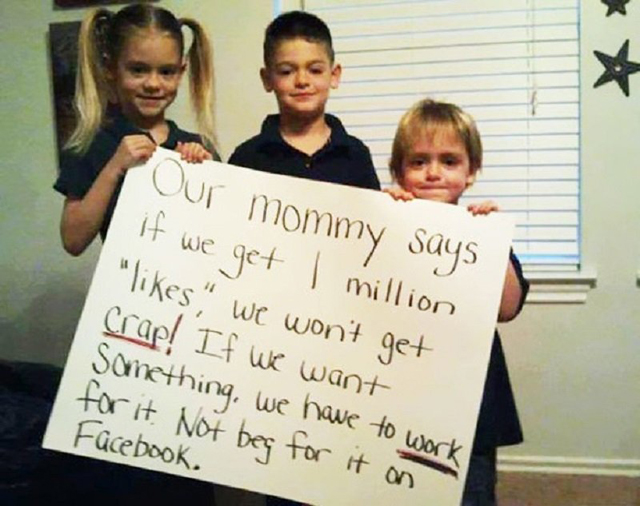 Our mommy says
if we get 1 million
"likes," we won't get
crap! If we want
something, we have to work
for it. Not beg for it on
Facebook.